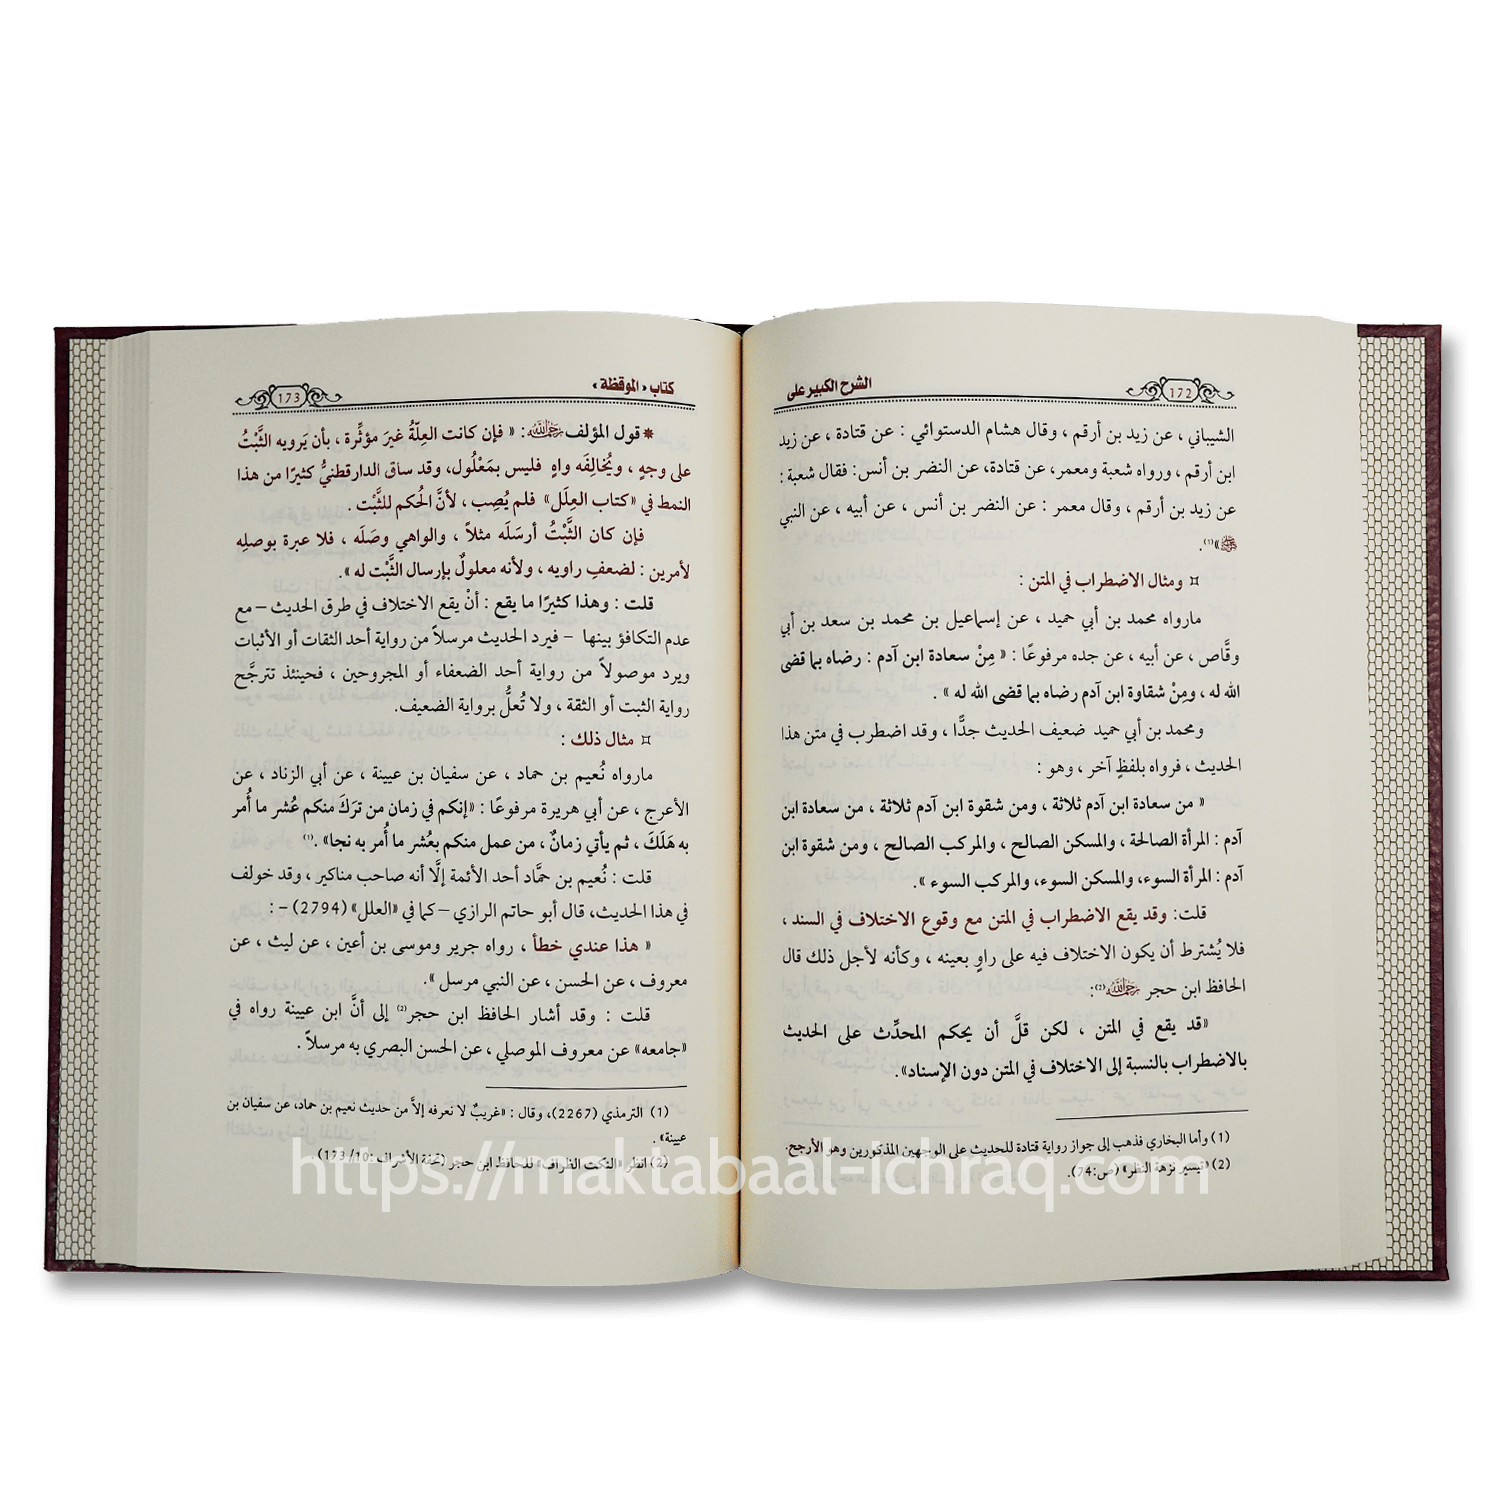 172
الشرح الكبير على
الشيباني ، عن زيد بن أرقم ، وقال هشام الدستوائي : عن قتادة ، عن زيد
ابن أرقم ، ورواه شعبة ومعمر، عن قتادة، عن النضر بن أنس: فقال شعبة :
عن زيد بن أرقم ، وقال معمر : عن النضر بن أنس ، عن أبيه ، عن النبي
ﷺ»(1).
¤ ومثال الاضطراب في المتن :
مارواه محمد بن أبي حميد ، عن إسماعيل بن محمد بن سعد بن أبي
وقَّاص ، عن أبيه ، عن جده مرفوعًا : « مِنْ سعادة ابن آدم : رضاه بما قضى
الله له ، ومِنْ شقاوة ابن آدم رضاه بما قضى الله له » .
ومحمد بن أبي حميد ضعيف الحديث جدًّا ، وقد اضطرب في متن هذا
الحديث ، فرواه بلفظٍ آخر ، وهو :
« من سعادة ابن آدم ثلاثة ، ومن شقوة ابن آدم ثلاثة ، من سعادة ابن
آدم : المرأة الصالحة ، والمسكن الصالح ، والمركب الصالح ، ومن شقوة ابن
آدم : المرأة السوء، والمسكن السوء، والمركب السوء ».
قلت: وقد يقع الاضطراب في المتن مع وقوع الاختلاف في السند ،
فلا يُشترط أن يكون الاختلاف فيه على راوٍ بعينه ، وكأنه لأجل ذلك قال
الحافظ ابن حجر رحمه الله(2):
«قد يقع في المتن ، لكن قلَّ أن يحكم المحدِّث على الحديث
بالاضطراب بالنسبة إلى الاختلاف في المتن دون الإسناد».
(1) وأما البخاري فذهب إلى جواز رواية قتادة للحديث على الوجهين المذكورين وهو الأرجح.
(2) «تيسير نزهة النظر» (ص:74).
كتاب «الموقظة»
173
* قول المؤلف رحمه الله: « فإن كانت العِلّةُ غيرَ مؤثِّرة ، بأن يَرويه الثَّبْتُ
على وجهٍ ، ويُخالِفَه واهٍ فليس بمَعْلُول، وقد ساق الدارقطنيُّ كثيرًا من هذا
النمط في «كتاب العِلَل» فلم يُصِب ، لأنَّ الحُكم للثَّبْت .
فإن كان الثَّبْتُ أرسَلَه مثلاً ، والواهي وصَلَه ، فلا عبرة بوصلِه
لأمرين : لضعفِ راويه ، ولأنه معلولٌ بإرسال الثَّبْت له ».
قلت : وهذا كثيرًا ما يقع : أنْ يقع الاختلاف في طرق الحديث – مع
عدم التكافؤ بينها – فيرد الحديث مرسلاً من رواية أحد الثقات أو الأثبات
ويرد موصولاً من رواية أحد الضعفاء أو المجروحين ، فحينئذ تترجَّح
رواية الثبت أو الثقة ، ولا تُعلُّ برواية الضعيف.
¤ مثال ذلك :
مارواه نُعيم بن حماد ، عن سفيان بن عيينة ، عن أبي الزناد ، عن
الأعرج ، عن أبي هريرة مرفوعًا : «إنكم في زمان من ترَكَ منكم عُشر ما أُمر
به هَلَكَ ، ثم يأتي زمانٌ ، من عمل منكم بعُشر ما أُمر به نجا» .(1)
قلت : نُعيم بن حمَّاد أحد الأئمة إلَّا أنه صاحب مناكير ، وقد خولف
في هذا الحديث، قال أبو حاتم الرازي – كما في «العلل» (2794) – :
« هذا عندي خطأ ، رواه جرير وموسى بن أعين ، عن ليث ، عن
معروف ، عن الحسن ، عن النبي مرسل ».
قلت : وقد أشار الحافظ ابن حجر(2) إلى أنَّ ابن عيينة رواه في
«جامعه» عن معروف الموصلي ، عن الحسن البصري به مرسلاً .
(1) الترمذي (2267)، وقال : «غريبٌ لا نعرفه إلاَّ من حديث نعيم بن حماد، عن سفيان بن
عيينة» .
(2) انظر «النكت الظراف» للحافظ ابن حجر (تحفة الأشراف :10/ 173).
https://maktabaal-ichraq.com